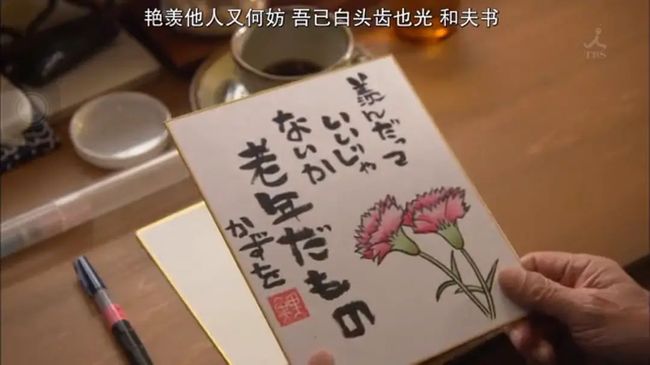 艳羡他人又何妨 吾已白头齿也光 和夫书
TBS
羨んだって
いいじゃ
ないか
老年だもの
かずを